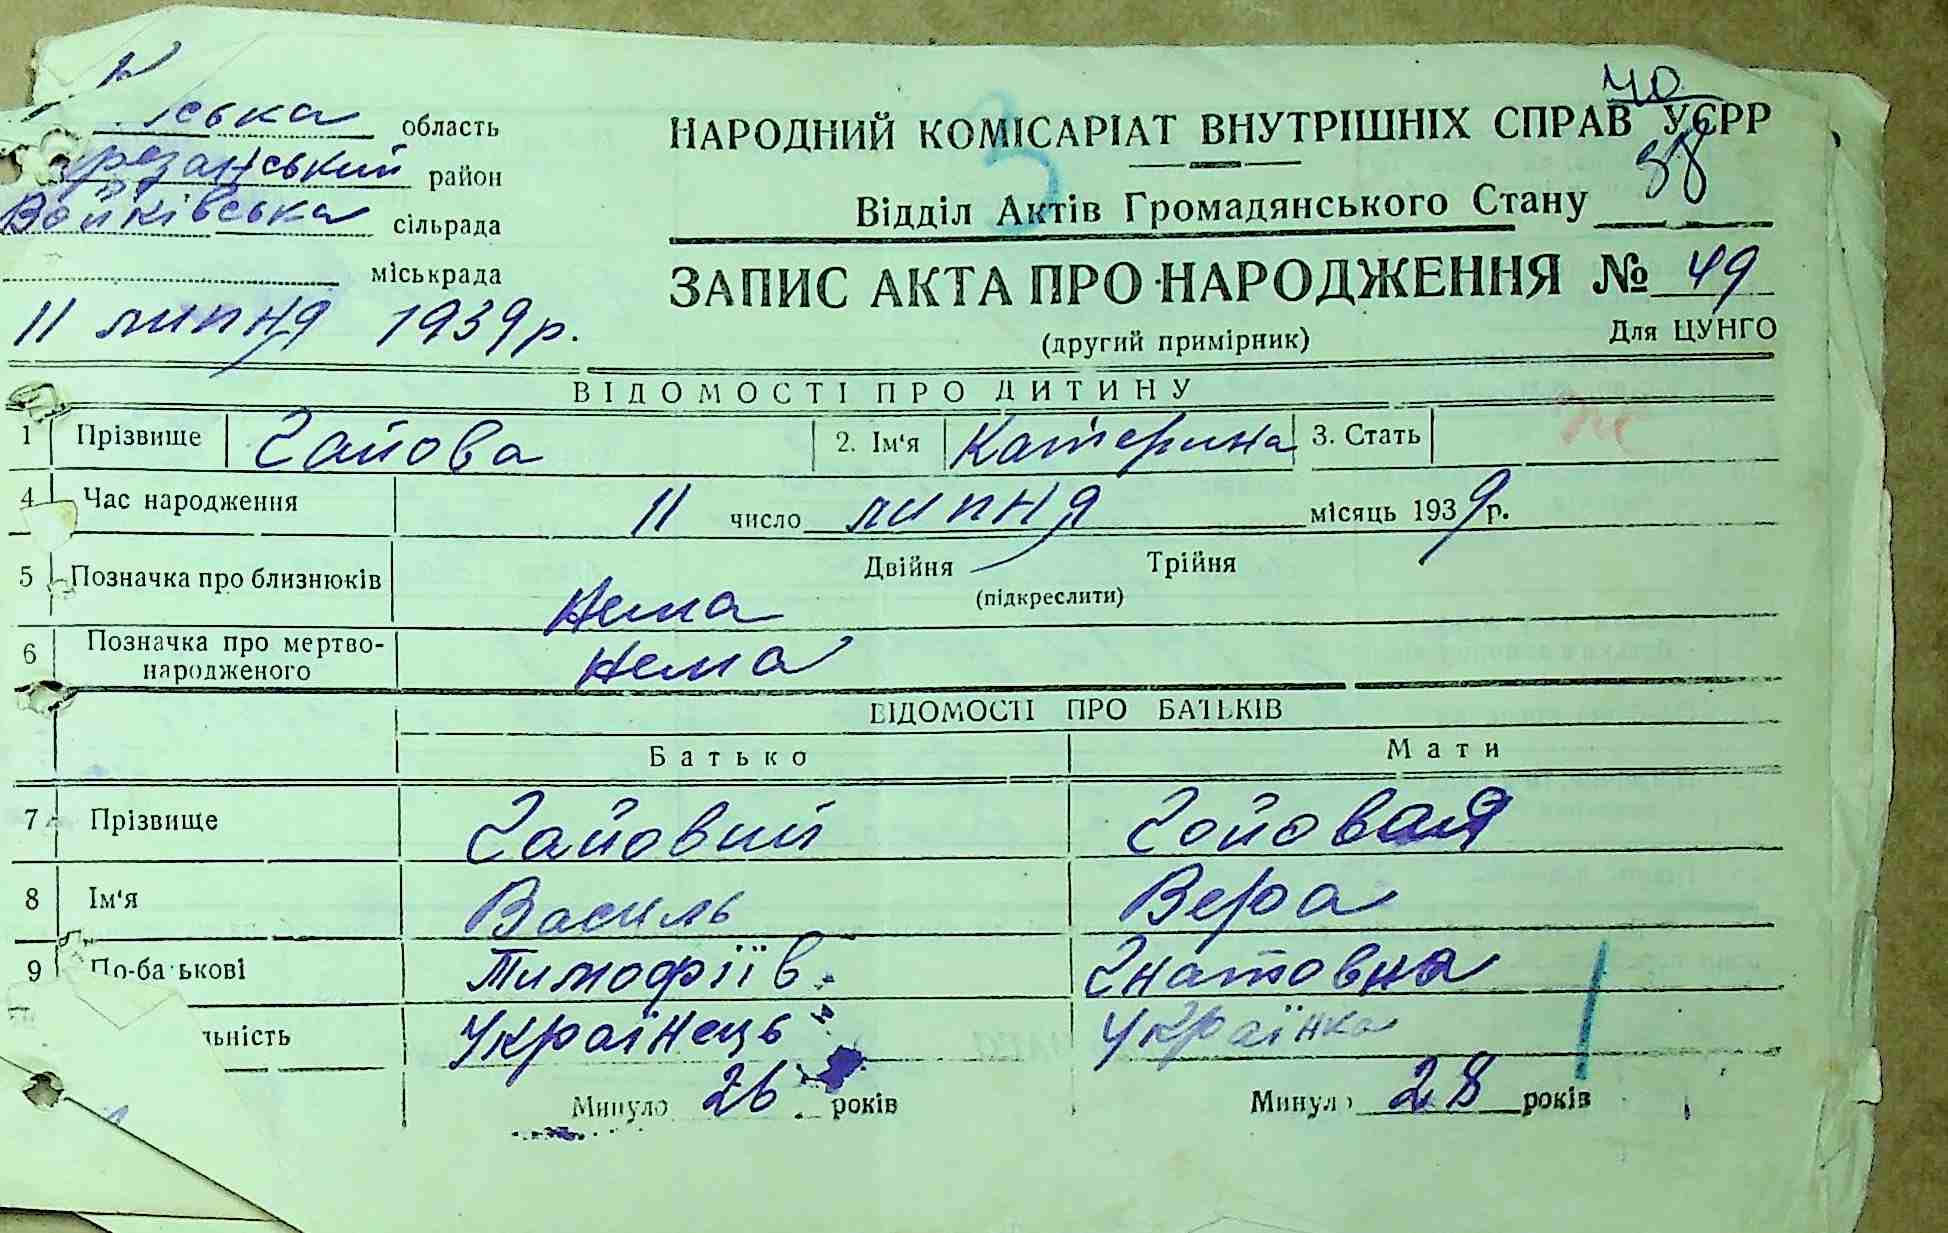 ська область
район
Войківська сільрада
міськрада
11 липня 1939 р.
40
НАРОДНИЙ КОМІСАРІАТ ВНУТРІШНІХ СПРАВ УСРР
3
Відділ Актів Громадянського Стану 38
ЗАПИС АКТА ПРО НАРОДЖЕННЯ № 49
(другий примірник) Для ЦУНГО
ВІДОМОСТІ ПРО ДИТИНУ
1 Прізвище Гайова 2. Ім'я Катерина 3. Стать
4 Час народження 11 число липня місяць 1939 р.
5 Позначка про близнюків Нема Двійня Трійня
(підкреслити)
6 Позначка про мертво-
народженого Нема
ВІДОМОСТІ ПРО БАТЬКІВ
Батько Мати
7 Прізвище Гайовий Гойовая
8 Ім'я Василь Вера
9 По-батькові Тимофіїв. Гнатовна
льність Українець Українка
Минуло 26 років Минуло 28 років